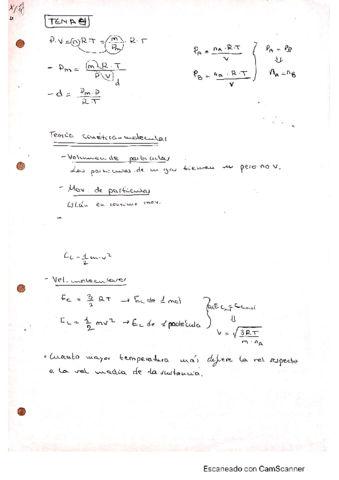 TEMA
P.V = n R T = m/Pm · R · T
PA = nA·R·T / V
PA = PB
⇓
nA = nB
PB = nB·R·T / V
- Pm = m R·T / P V
d
- d = Pm·P / R T
Teoría cinético molecular
- Volumen de partículas
Las partículas de un gas tienen m pero no v.
- Mov. de partículas
Están en continuo mov.
Ec = 1/2 m·v²
- Vel. moleculares
Ec = 3/2 RT → Ec de 1 mol
Ec = 1/2 mv² → Ec de 1 partícula
⇓
v = √3RT / m·nA
• Cuanto mayor temperatura más difiere la vel respecto
a la vel media de la sustancia.
Escaneado con CamScanner